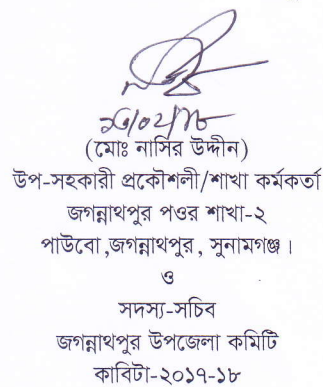 (মোঃ নাসির উদ্দীন)
উপ-সহকারী প্রকৌশলী/শাখা কর্মকর্তা
জগন্নাথপুর পওর শাখা-২
পাউবো ,জগন্নাথপুর , সুনামগঞ্জ ।
ও
সদস্য-সচিব
জগন্নাথপুর উপজেলা কমিটি
কাবিটা-২০১৭-১৮